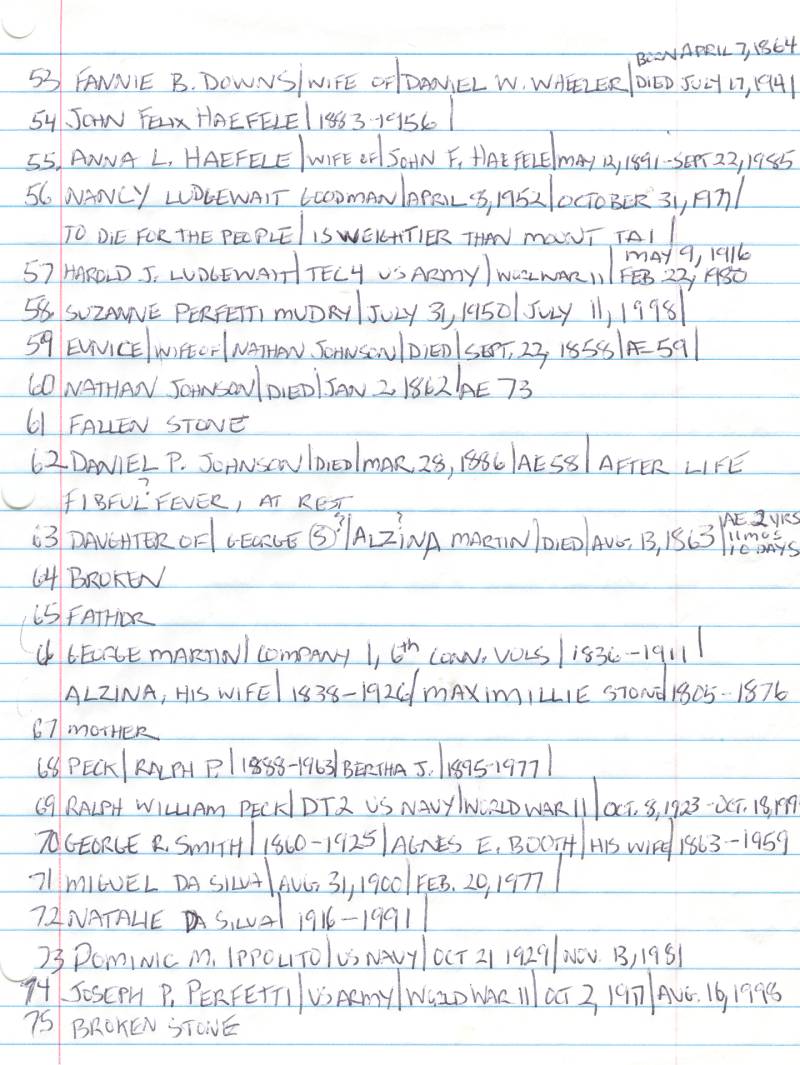 BORN APRIL 7, 1864
53 FANNIE B. DOWNS | WIFE OF | DANIEL W. WHEELER | DIED JULY 17, 1941
54 JOHN FELIX HAEFELE | 1883-1956 |
55. ANNA L. HAEFELE | WIFE OF | JOHN F. HAEFELE | MAY 12, 1891 - SEPT 22, 1985
56 NANCY LUDGEWAIT GOODMAN | APRIL 8, 1952 | OCTOBER 31, 1977 |
TO DIE FOR THE PEOPLE | IS WEIGHTIER THAN MOUNT TAI |
MAY 9, 1916
57 HAROLD J. LUDGEWAIT | TEC 4 US ARMY | WORLD WAR II | FEB 22, 1980
58 SUZANNE PERFETTI MUDRY | JULY 31, 1950 | JULY 11, 1998 |
59 EUNICE | WIFE OF | NATHAN JOHNSON | DIED | SEPT. 22, 1858 | AE 59 |
60 NATHAN JOHNSON | DIED | JAN 2 1862 | AE 73
61 FALLEN STONE
62 DANIEL P. JOHNSON | DIED | MAR 28, 1886 | AE 58 | AFTER LIFE
FIBFUL? FEVER, AT REST
63 DAUGHTER OF | GEORGE (S)? | ALZINA? MARTIN | DIED | AUG. 13, 1863 | AE. 2 YRS
11 MOS
10 DAYS
64 BROKEN
65 FATHOR
66 GEORGE MARTIN | COMPANY I, 6th CONN. VOLS | 1836-1911 |
ALZINA, HIS WIFE | 1838-1926 / MAXIMILLIE STONE | 1805-1876
67 MOTHER
68 PECK | RALPH P. | 1888-1963 | BERTHA J. | 1895-1977 |
69 RALPH WILLIAM PECK | DT2 US NAVY | WORLD WAR II | OCT. 8, 1923 - OCT. 18, 199
70 GEORGE R. SMITH | 1860-1925 | AGNES E. BOOTH | HIS WIFE | 1863-1959
71 MIGUEL DA SILVA | AUG. 31, 1900 | FEB. 20, 1977 |
72 NATALIE DA SILVA | 1916-1991 |
73 DOMINIC M. IPPOLITO | US NAVY | OCT 21 1929 | NOV. 13, 1981
74 JOSEPH P. PERFETTI | US ARMY | WORLD WAR II | OCT 2, 1917 | AUG. 16, 1998
75 BROKEN STONE